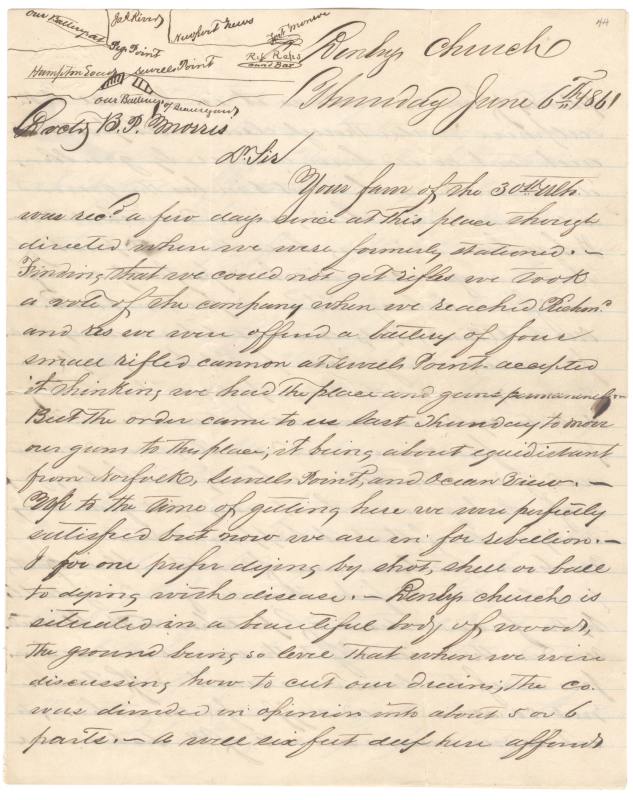 44
our Battery at
Jas River
Newport News
Pig Point
Fort Monroe
Hampton Roads
Sewells Point
R. Raps
Sand Bar
our Battery
Denbys Church
Thursday June 6th 1861
Doctr B. P. Morris
Dr. Sir
Your favr of the 30th ult.
was recd a few days since at this place though
directed where we were formerly stationed. –
Finding that we could not get rifles we took
a vote of the company when we reached Richmd
and as we were offered a battery of four
small rifled cannon at Sewels Point accepted
it thinking we had the place and guns permanently –
But the order came to us last Thursday to move
our guns to this place; it being about equidistant
from Norfolk, Sewels Point, and Ocean View. –
Up to the time of getting here we were perfectly
satisfied but now we are in for rebellion. –
I for one prefer dying by shot, shell or ball
to dying with disease. – Denbys church is
situated in a beautiful body of woods,
the ground being so level that when we were
discussing how to cut our drains, the co.
was divided in opinion into about 5 or 6
parts. – A well six feet deep here affords